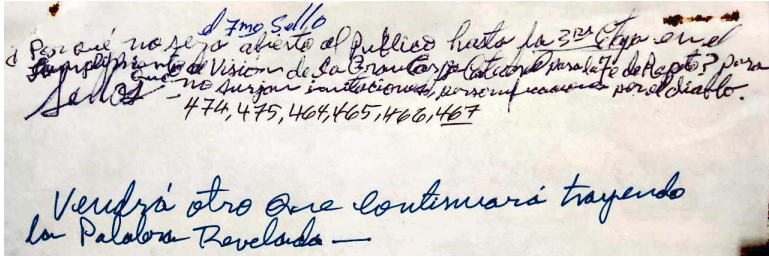 el 7mo Sello
¿Porqué no será abierto al publico hasta la 3ra Etapa en el
Cumplimiento de la Visión de La Gran Carpa Catedral para la Fe de Rapto? para
Sellos que no surjan imitaciones, personificaciones por el diablo.
474, 475, 464, 465, 466, 467
Vendrá otro que continuará trayendo
la Palabra Revelada —